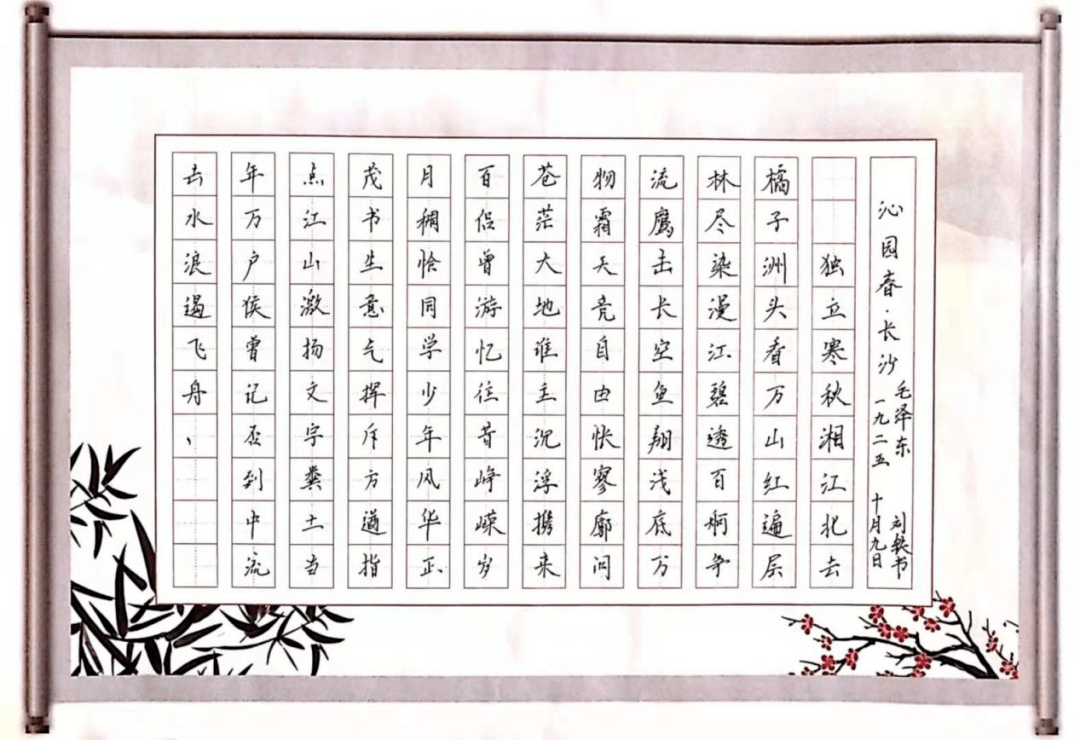 沁园春·长沙
毛泽东
一九二五
十月九日
刘铁书
独立寒秋湘江北去
橘子洲头看万山红遍层
林尽染漫江碧透百舸争
流鹰击长空鱼翔浅底万
物霜天竞自由怅寥廓问
苍茫大地谁主沉浮携来
百侣曾游忆往昔峥嵘岁
月稠恰同学少年风华正
茂书生意气挥斥方遒指
点江山激扬文字粪土当
年万户侯曾记否到中流
击水浪遏飞舟、